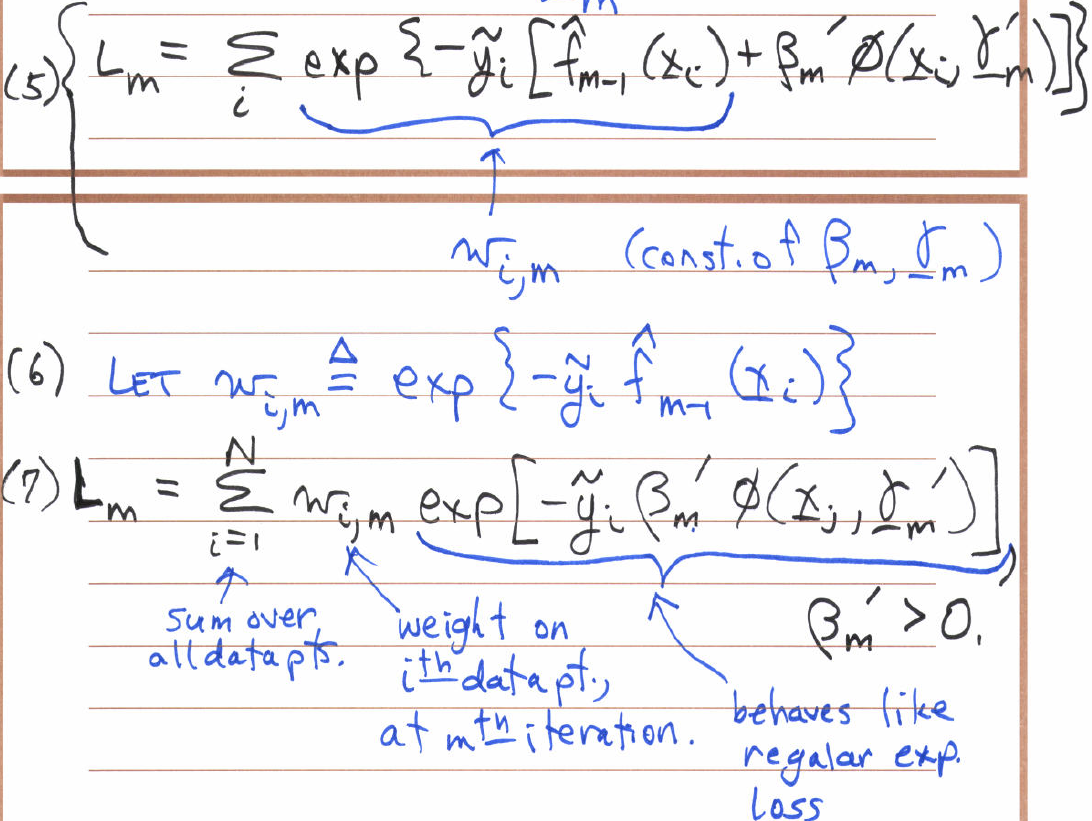 m
(5) { L_m = Σ_i exp {-ỹ_i [f̂_{m-1} (x_i) + β_m' φ(x_i, γ_m')]}
w_{i,m} (const. of β_m, γ_m)
(6) LET w_{i,m} ≜ exp {-ỹ_i f̂_{m-1} (x_i)}
(7) L_m = Σ_{i=1}^N w_{i,m} exp[-ỹ_i β_m' φ(x_i, γ_m')],
β_m' > 0.
sum over
all data pts.
weight on
ith data pt.,
at mth iteration.
behaves like
regalar exp.
loss